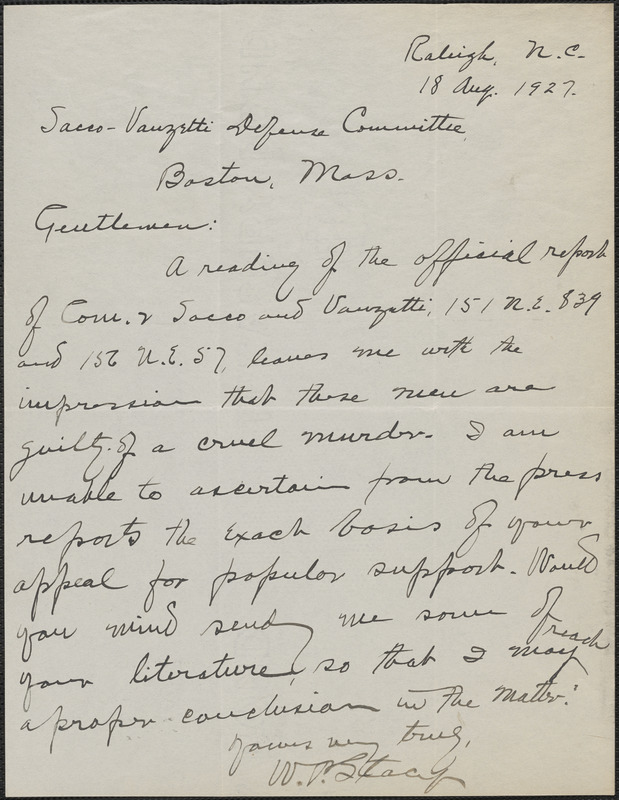 Raleigh, N.C.
18 Aug. 1927.
Sacco-Vanzetti Defense Committee,
Boston, Mass.
Gentlemen:
A reading of the official report
of Com. v Sacco and Vanzetti, 151 N.E. 839
and 156 N.E. 57, leaves me with the
impression that these men are
guilty of a cruel murder. I am
unable to ascertain from the press
reports the exact basis of your
appeal for popular support. Would
you mind send me some of
your literature, so that I may reach
a proper conclusion in the matter?
Yours very truly,
W.P. Stacy